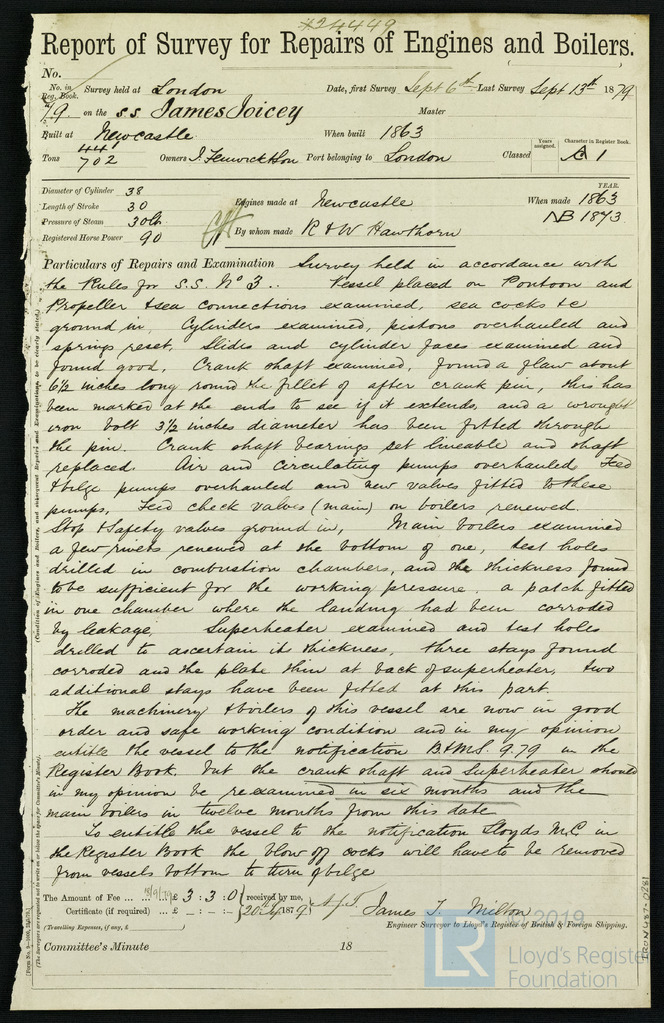 *24449
Report of Survey for Repairs of Engines and Boilers.
No.
No. in Reg. Book. Survey held at London Date, first Survey Sept 6th Last Survey Sept 13th 1879
on the S.S. James Joicey Master
Built at Newcastle When built 1863
Tons 441 702 Owners J. Fenwick & Son Port belonging to London Classed Years assigned. Character in Register Book. A 1
Diameter of Cylinder 38
Length of Stroke 30 Engines made at Newcastle When made YEAR. 1863
Pressure of Steam 30lb NB 1873
Registered Horse Power 90 By whom made R & W Hawthorn
Particulars of Repairs and Examination Survey held in accordance with
the Rules for S.S. No 3.. Vessel placed on Pontoon and
Propeller & sea connections examined, sea cocks &c
ground in, Cylinders examined, pistons overhauled and
springs reset, Slides and cylinder faces examined and
found good, Crank shaft examined, found a flaw about
6 1/2 inches long round the fillet of after crank pin, this has
been marked at the ends to see if it extends, and a wrought
iron bolt 3 1/2 inches diameter has been fitted through
the pin. Crank shaft bearings set lineable and shaft
replaced. Air and circulating pumps overhauled Feed
& bilge pumps overhauled and new valves fitted to these
pumps, Feed check valves (main) on boilers renewed.
Stop & Safety valves ground in, Main boilers examined
a few rivets renewed at the bottom of one, test holes
drilled in combustion chambers, and the thickness found
to be sufficient for the working pressure, a patch fitted
in one chamber where the landing had been corroded
by leakage, Superheater examined and test holes
drilled to ascertain its thickness, three stays found
corroded and the plate thin at back of superheater, two
additional stays have been fitted at this part.
The machinery & boilers of this vessel are now in good
order and safe working condition and in my opinion
entitle the vessel to the notification B.&M.S. 9.79 in the
Register Book. but the crank shaft and Superheater should
in my opinion be reexamined in six months and the
main boilers in twelve months from this date
To entitle the vessel to the notification Lloyds M.C. in
the Register Book the blow off cocks will have to be removed
from vessels bottom to turn of bilge
The Amount of Fee ... £ 3 : 3 : 0 received by me,
Certificate (if required) ... £ - : - : - 1879. James T. Milton
(Travelling Expenses, if any, £ ) Engineer Surveyor to Lloyd's Register of British & Foreign Shipping.
Committee's Minute 18
(Condition of Engines and Boilers, and subsequent Repairs and Examinations, to be clearly stated.)
(The Surveyors are requested not to write on or below the space for Committee's Minute).
IRON487-0281
LR
2019
Lloyd's Register
Foundation